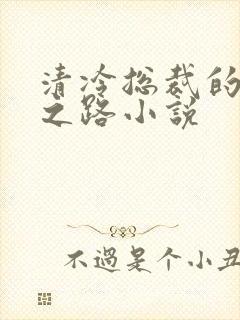 清冷总裁的
之路小说
不過是个小丑